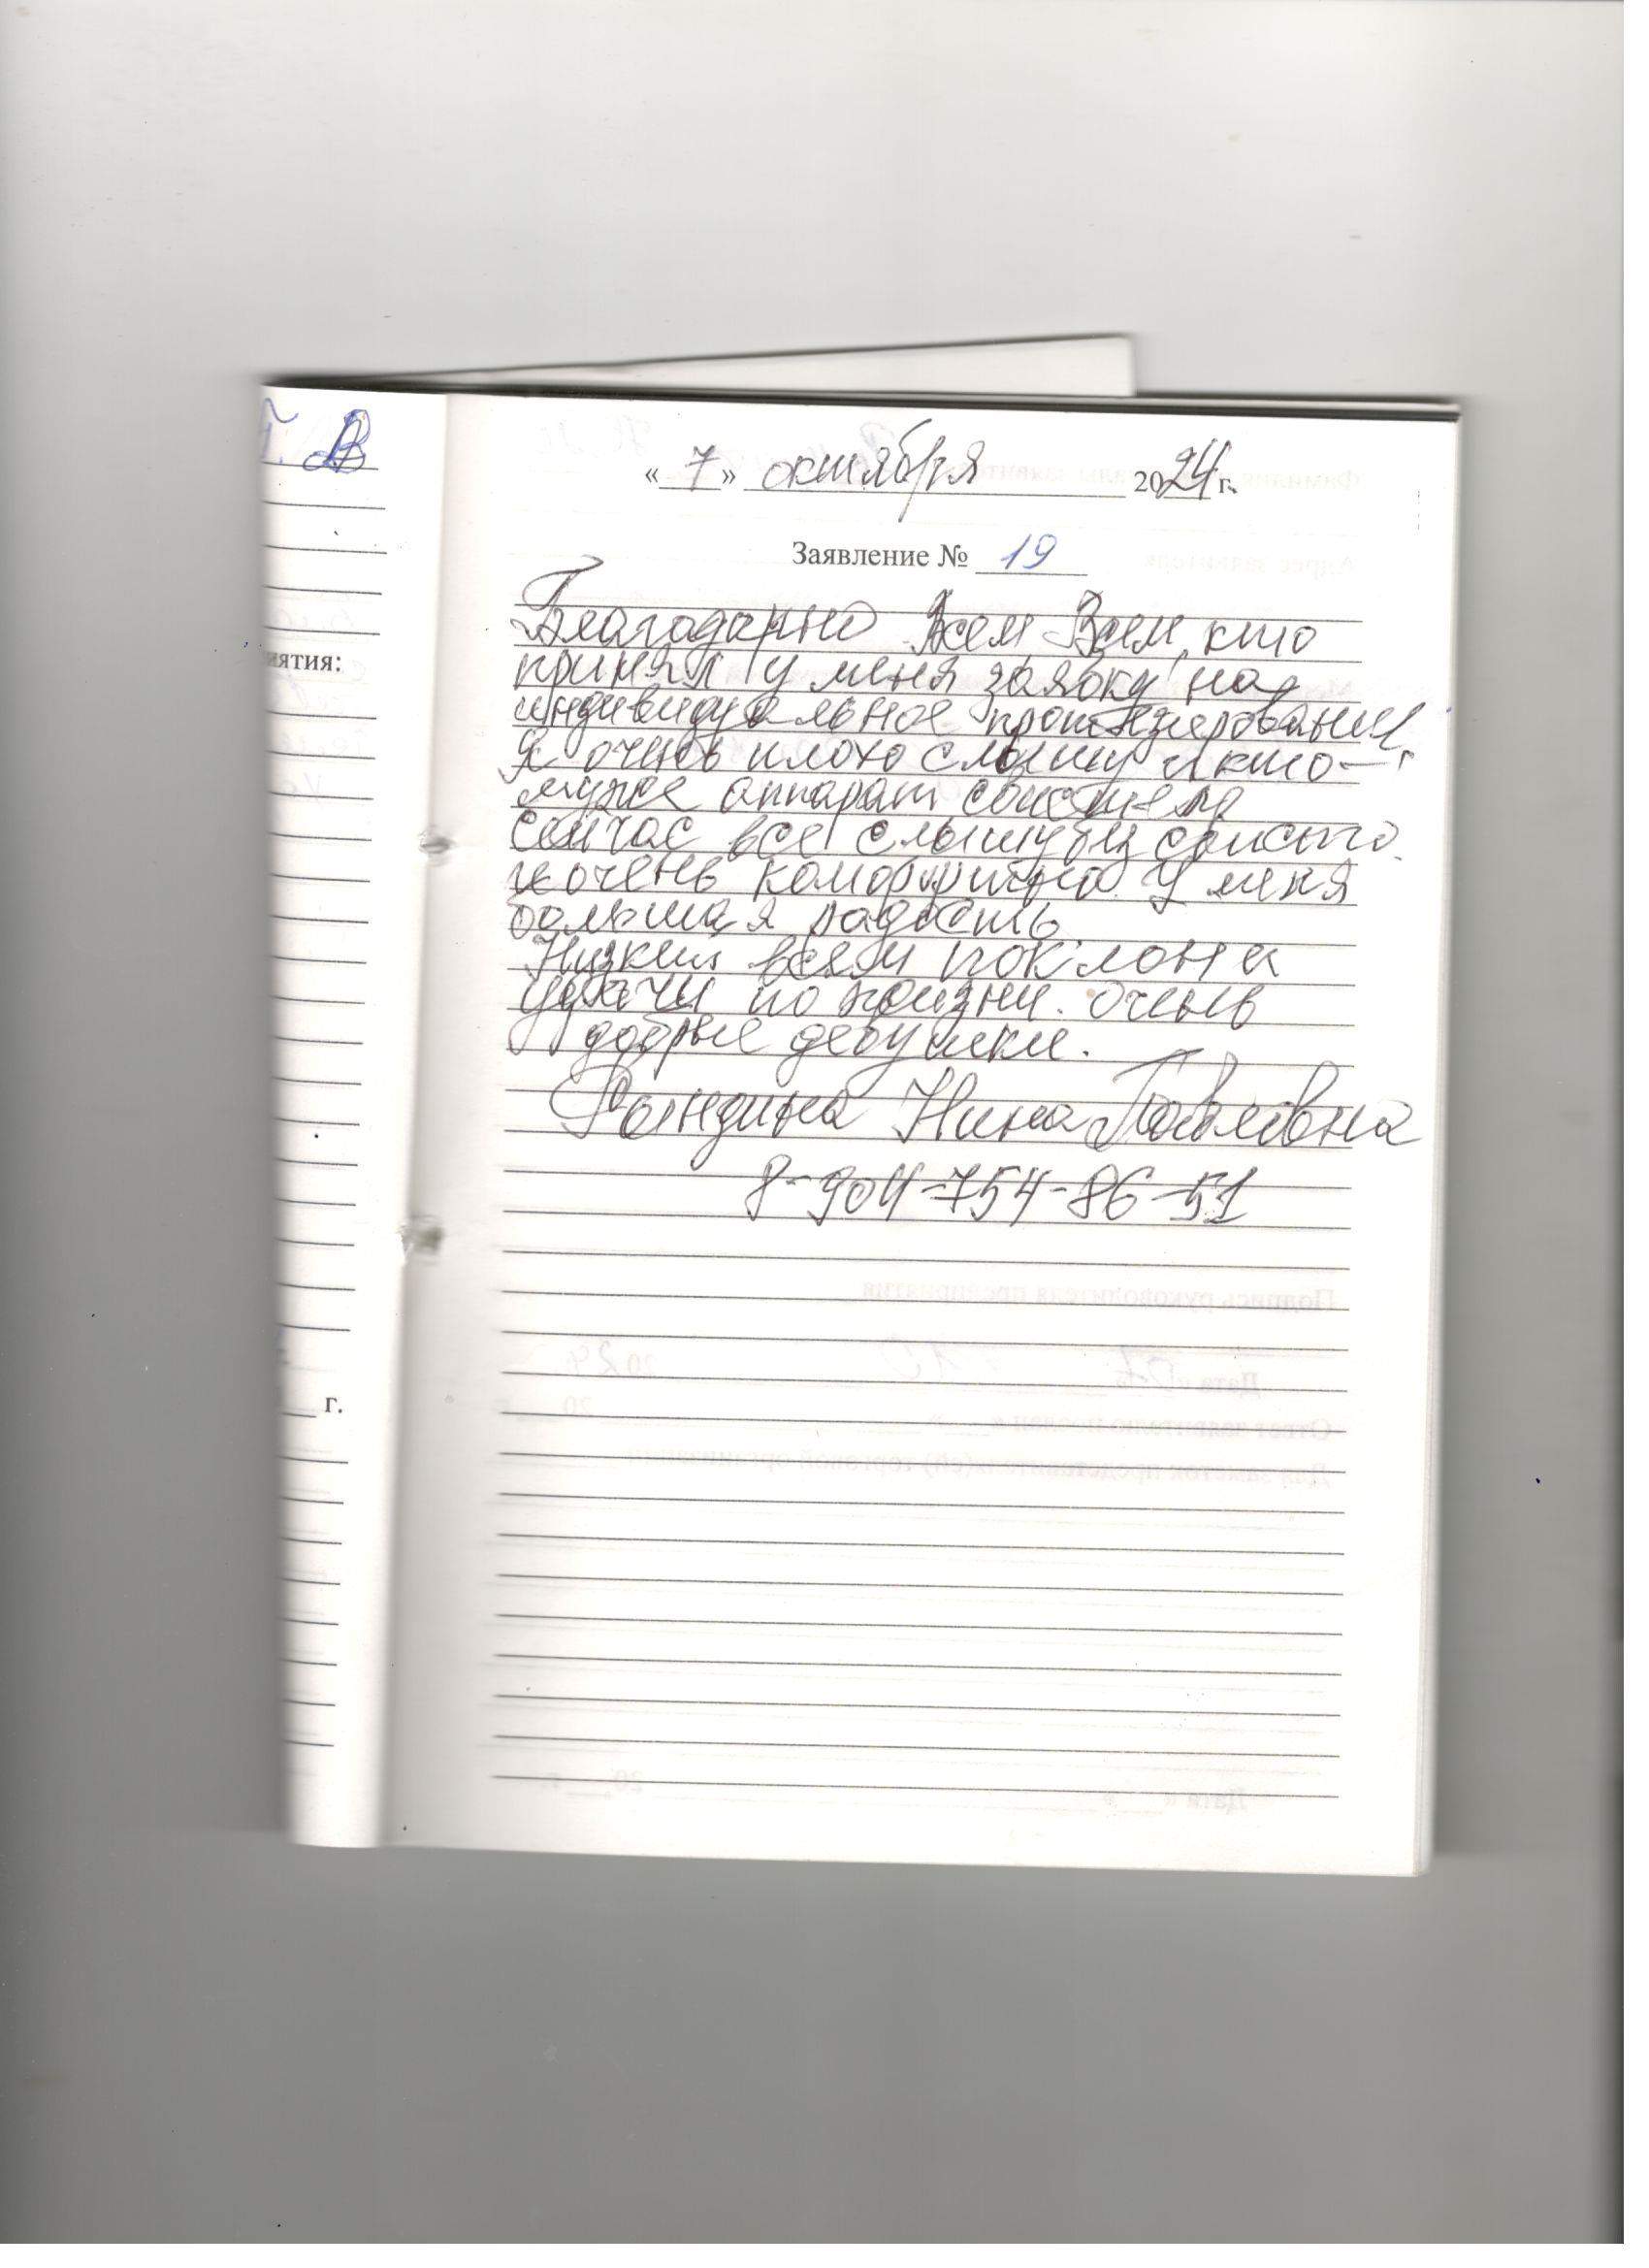 « 7 » октября 2024 г.
Заявление № 19
Благодарно Всем, Всем, кто
принял у меня заявку на
индивидуальное протезирование.
Я очень плохо слышу и к то-
муже аппарат свистела
сейчас все слышу без свиста
и очень комфортно. У меня
большая радость
Низкий всем поклон и
удачи по жизни. Очень
добрые девушки.
Рындина Нина Павловна
8-904-754-86-51
иятия:
г.